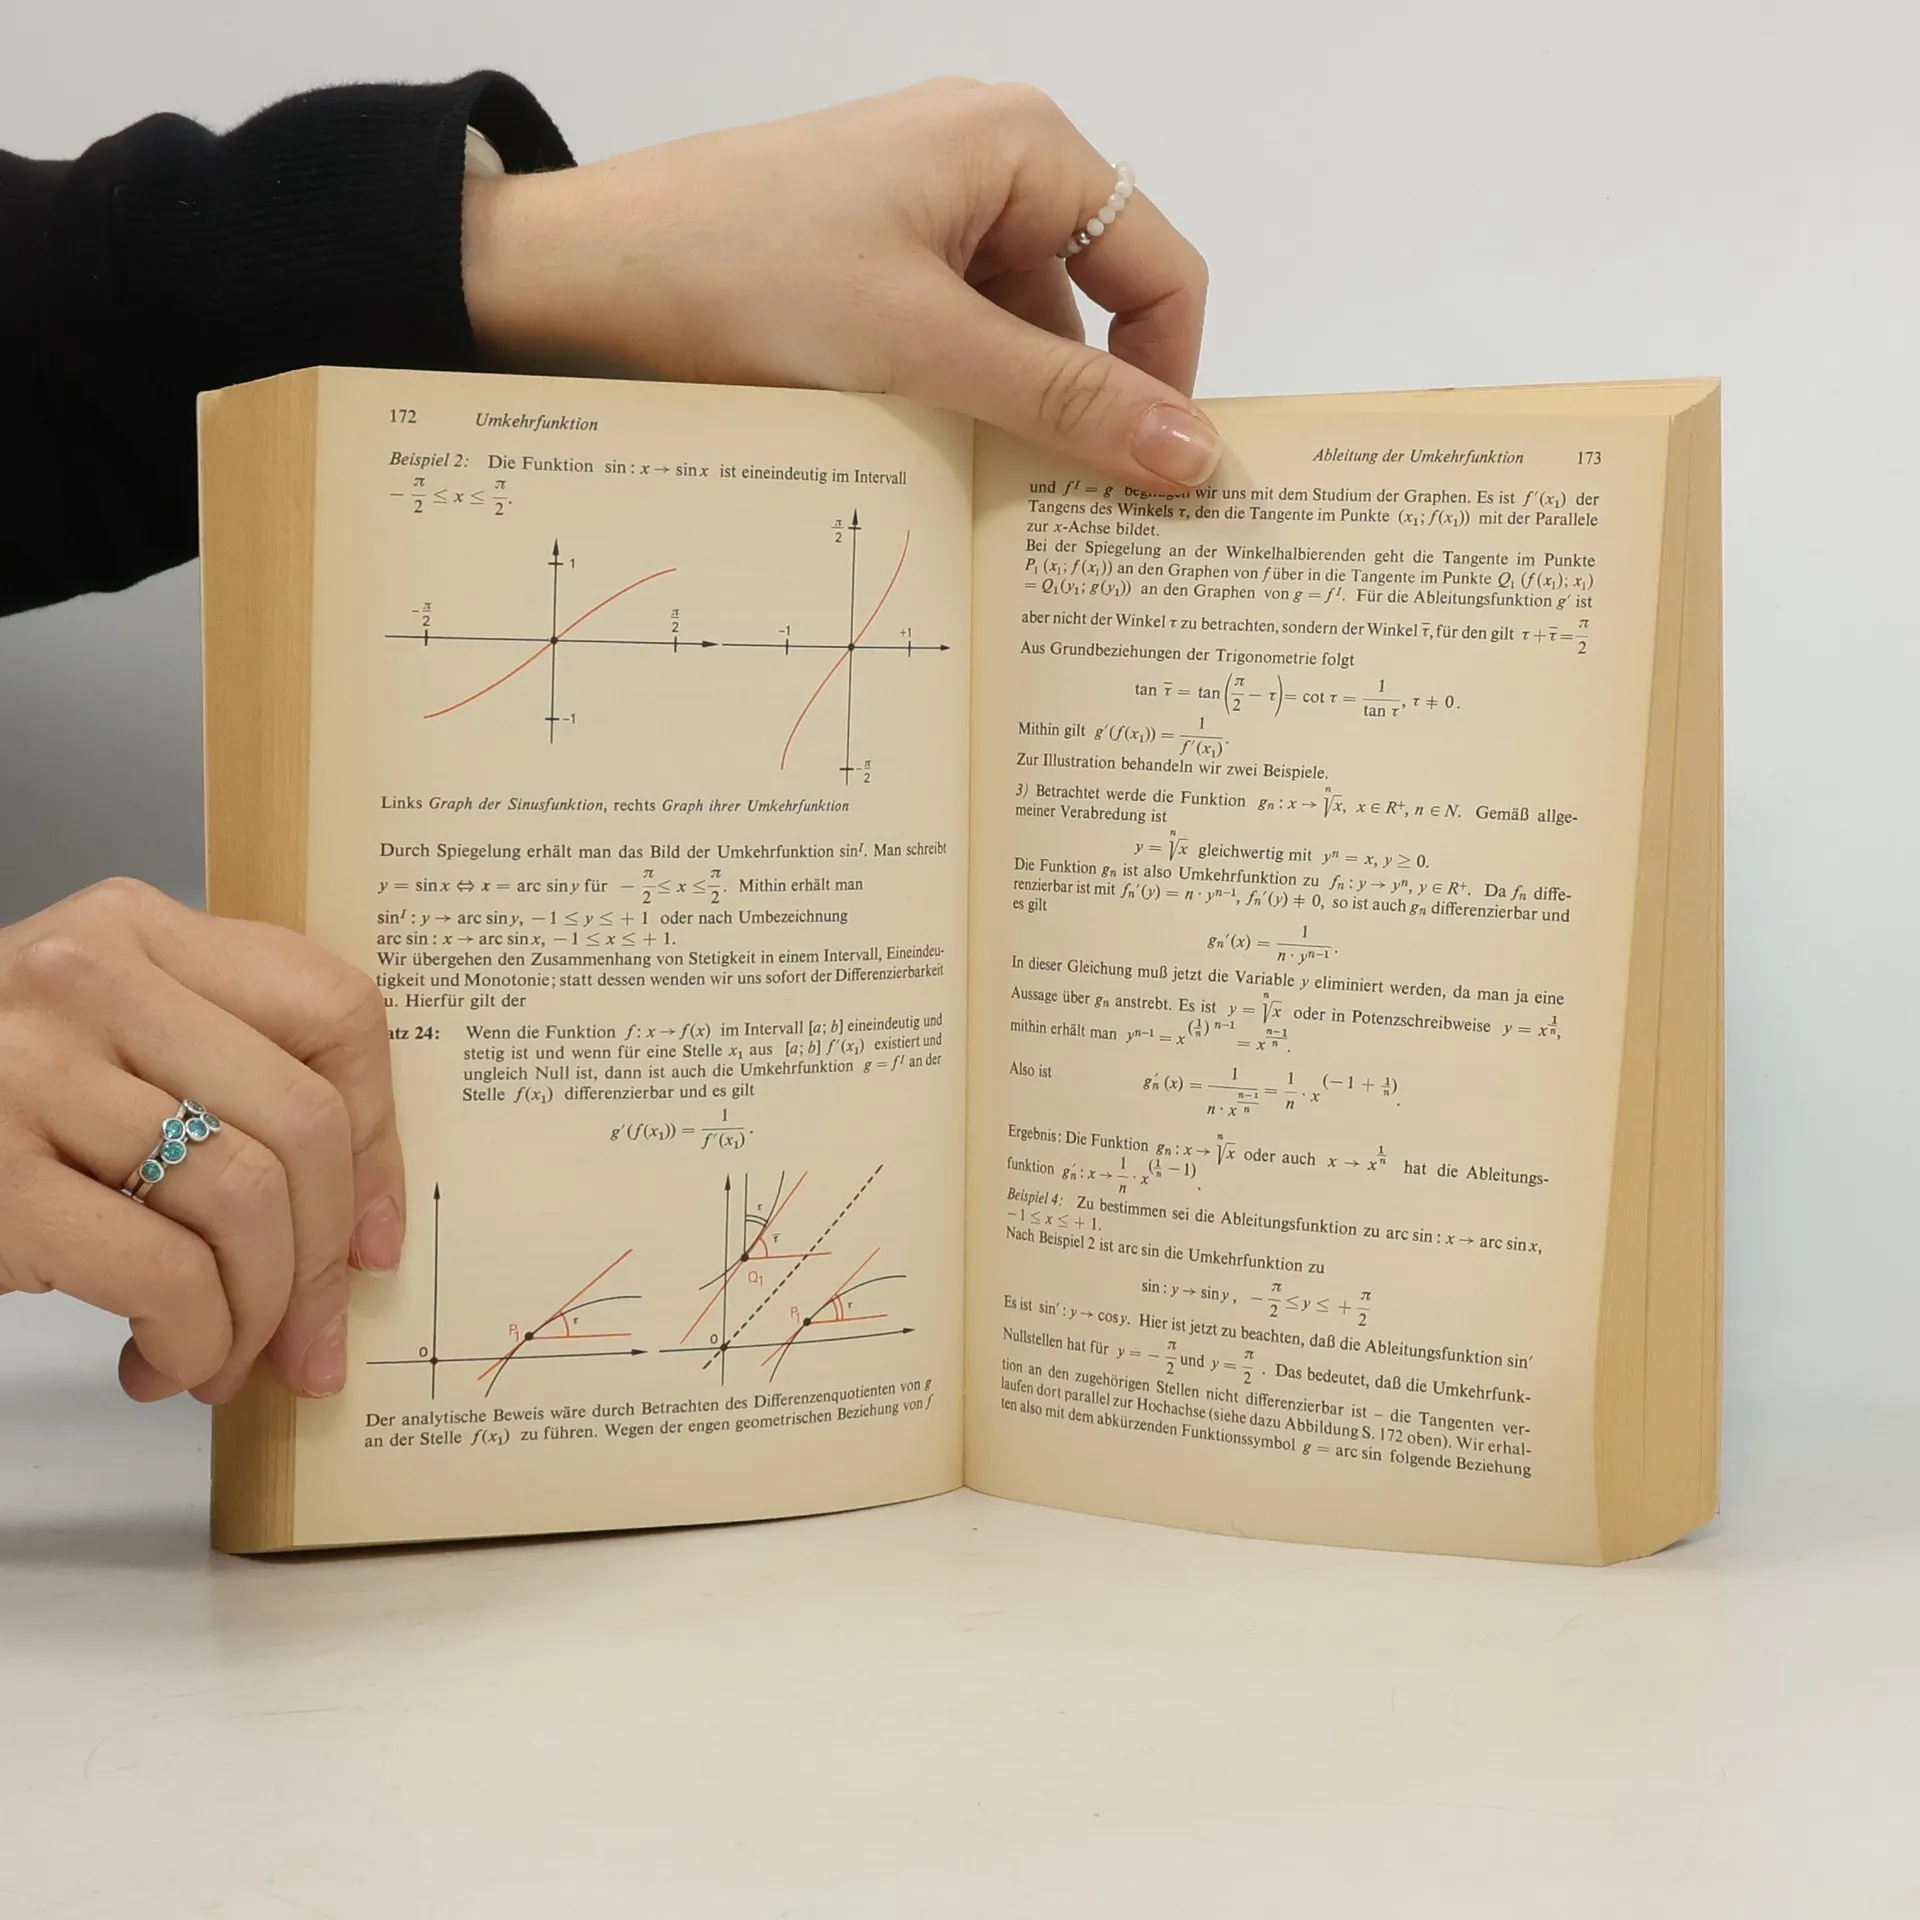 172 Umkehrfunktion
Beispiel 2: Die Funktion sin : x → sin x ist eineindeutig im Intervall
− π/2 ≤ x ≤ π/2.
π/2
1
−π/2 π/2 −1 +1
−1
−π/2
Links Graph der Sinusfunktion, rechts Graph ihrer Umkehrfunktion
Durch Spiegelung erhält man das Bild der Umkehrfunktion sinᴵ. Man schreibt
y = sin x ⇔ x = arc sin y für − π/2 ≤ x ≤ π/2. Mithin erhält man
sinᴵ : y → arc sin y, − 1 ≤ y ≤ + 1 oder nach Umbezeichnung
arc sin : x → arc sin x, − 1 ≤ x ≤ + 1.
Wir übergehen den Zusammenhang von Stetigkeit in einem Intervall, Eineindeu-
tigkeit und Monotonie; statt dessen wenden wir uns sofort der Differenzierbarkeit
u. Hierfür gilt der
atz 24: Wenn die Funktion f : x → f(x) im Intervall [a; b] eineindeutig und
stetig ist und wenn für eine Stelle x₁ aus [a; b] f′(x₁) existiert und
ungleich Null ist, dann ist auch die Umkehrfunktion g = fᴵ an der
Stelle f(x₁) differenzierbar und es gilt
g′(f(x₁)) = 1/f′(x₁).
τ
τ̄
Q₁
P₁ τ P₁ τ
0 0
Der analytische Beweis wäre durch Betrachten des Differenzenquotienten von g
an der Stelle f(x₁) zu führen. Wegen der engen geometrischen Beziehung von f
Ableitung der Umkehrfunktion 173
und fᴵ = g wir uns mit dem Studium der Graphen. Es ist f′(x₁) der
Tangens des Winkels τ, den die Tangente im Punkte (x₁; f(x₁)) mit der Parallele
zur x-Achse bildet.
Bei der Spiegelung an der Winkelhalbierenden geht die Tangente im Punkte
P₁ (x₁; f(x₁)) an den Graphen von f über in die Tangente im Punkte Q₁ (f(x₁); x₁)
= Q₁(y₁; g(y₁)) an den Graphen von g = fᴵ. Für die Ableitungsfunktion g′ ist
aber nicht der Winkel τ zu betrachten, sondern der Winkel τ̄, für den gilt τ + τ̄ = π/2
Aus Grundbeziehungen der Trigonometrie folgt
tan τ̄ = tan (π/2 − τ) = cot τ = 1/tan τ, τ ≠ 0.
Mithin gilt g′(f(x₁)) = 1/f′(x₁).
Zur Illustration behandeln wir zwei Beispiele.
3) Betrachtet werde die Funktion gₙ : x → ⁿ√x, x ∈ R⁺, n ∈ N. Gemäß allge-
meiner Verabredung ist
y = ⁿ√x gleichwertig mit yⁿ = x, y ≥ 0.
Die Funktion gₙ ist also Umkehrfunktion zu fₙ : y → yⁿ, y ∈ R⁺. Da fₙ diffe-
renzierbar ist mit fₙ′(y) = n · yⁿ⁻¹, fₙ′(y) ≠ 0, so ist auch gₙ differenzierbar und
es gilt
gₙ′(x) = 1/(n · yⁿ⁻¹).
In dieser Gleichung muß jetzt die Variable y eliminiert werden, da man ja eine
Aussage über gₙ anstrebt. Es ist y = ⁿ√x oder in Potenzschreibweise y = x^(1/n),
mithin erhält man yⁿ⁻¹ = x^((1/n) n−1) = x^((n−1)/n).
Also ist gₙ′(x) = 1/(n · x^((n−1)/n)) = 1/n · x^(−1 + 1/n).
Ergebnis: Die Funktion gₙ : x → ⁿ√x oder auch x → x^(1/n) hat die Ableitungs-
funktion gₙ′ : x → 1/n · x^(1/n − 1).
Beispiel 4: Zu bestimmen sei die Ableitungsfunktion zu arc sin : x → arc sin x,
− 1 ≤ x ≤ + 1.
Nach Beispiel 2 ist arc sin die Umkehrfunktion zu
sin : y → sin y, − π/2 ≤ y ≤ + π/2
Es ist sin′ : y → cos y. Hier ist jetzt zu beachten, daß die Ableitungsfunktion sin′
Nullstellen hat für y = − π/2 und y = π/2. Das bedeutet, daß die Umkehrfunk-
tion an den zugehörigen Stellen nicht differenzierbar ist – die Tangenten ver-
laufen dort parallel zur Hochachse (siehe dazu Abbildung S. 172 oben). Wir erhal-
ten also mit dem abkürzenden Funktionssymbol g = arc sin folgende Beziehung